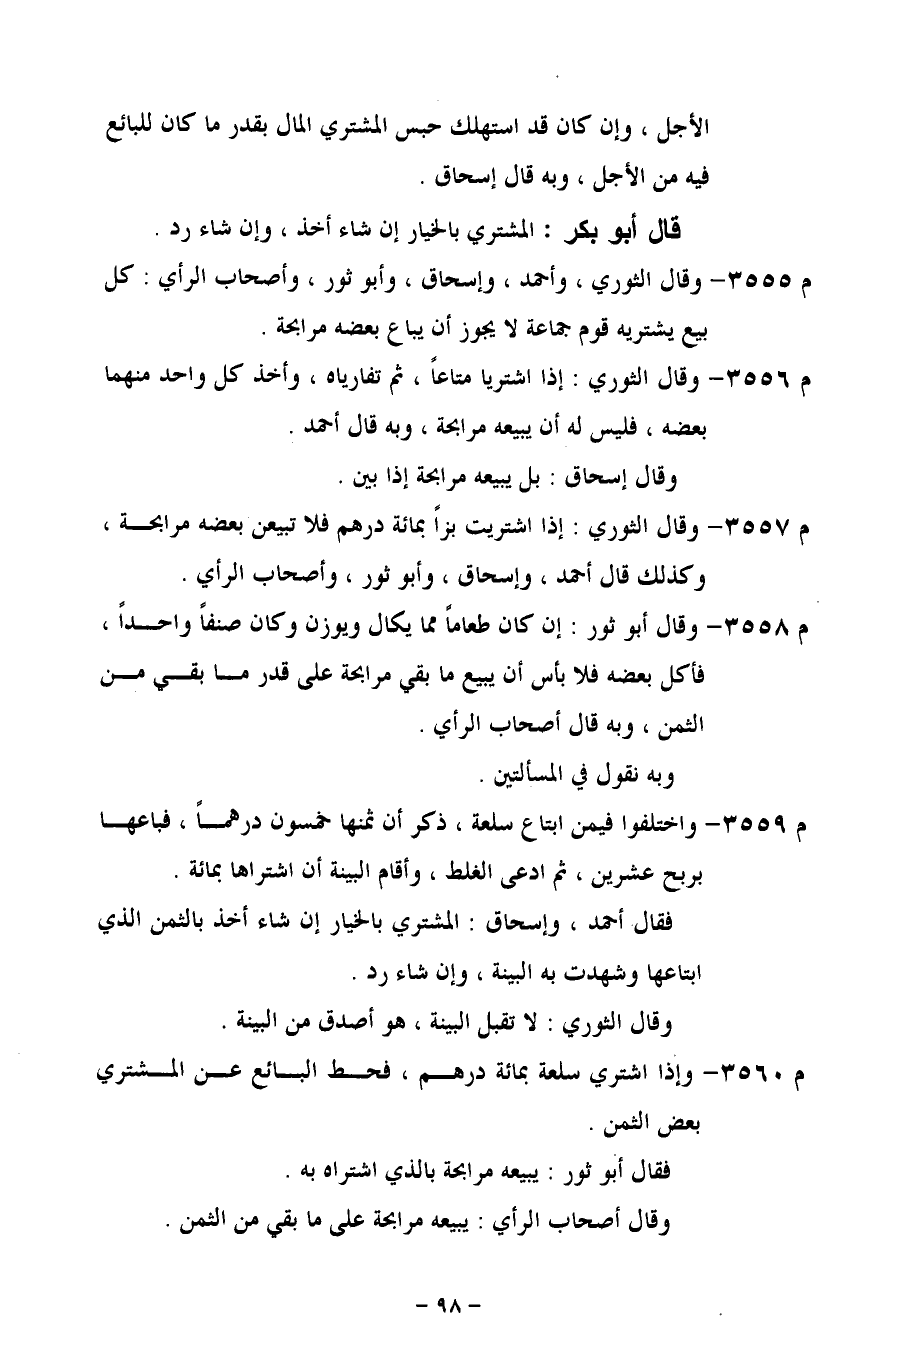 الأجل ، وإن كان قد استهلك حبس المشتري المال بقدر ما كان للبائع
فيه من الأجل ، وبه قال إسحاق .
قال أبو بكر : المشتري بالخيار إن شاء أخذ ، وإن شاء رد .
م ٣٥٥٥- وقال الثوري ، وأحمد ، وإسحاق ، وأبو ثور ، وأصحاب الرأي : كل
بيع يشتريه قوم جماعة لا يجوز أن يباع بعضه مرابحة .
م ٣٥٥٦- وقال الثوري : إذا اشتريا متاعاً ، ثم تفارياه ، وأخذ كل واحد منهما
بعضه ، فليس له أن يبيعه مرابحة ، وبه قال أحمد .
وقال إسحاق : بل يبيعه مرابحة إذا بين .
م ٣٥٥٧- وقال الثوري : إذا اشتريت بزاً بمائة درهم فلا تبيعن بعضه مرابحـــة ،
وكذلك قال أحمد ، وإسحاق ، وأبو ثور ، وأصحاب الرأي .
م ٣٥٥٨- وقال أبو ثور : إن كان طعاماً مما يكال ويوزن وكان صنفاً واحـــداً ،
فأكل بعضه فلا بأس أن يبيع ما بقي مرابحة على قدر مـــا بقـــي مـــن
الثمن ، وبه قال أصحاب الرأي .
وبه نقول في المسألتين .
م ٣٥٥٩- واختلفوا فيمن ابتاع سلعة ، ذكر أن ثمنها خمسون درهمـــاً ، فباعهـــا
بربح عشرين ، ثم ادعى الغلط ، وأقام البينة أن اشتراها بمائة .
فقال أحمد ، وإسحاق : المشتري بالخيار إن شاء أخذ بالثمن الذي
ابتاعها وشهدت به البينة ، وإن شاء رد .
وقال الثوري : لا تقبل البينة ، هو أصدق من البينة .
م ٣٥٦٠- وإذا اشتري سلعة بمائة درهـــم ، فحـــط البـــائع عـــن المـــشتري
بعض الثمن .
فقال أبو ثور : يبيعه مرابحة بالذي اشتراه به .
وقال أصحاب الرأي : يبيعه مرابحة على ما بقي من الثمن .
- ٩٨ -